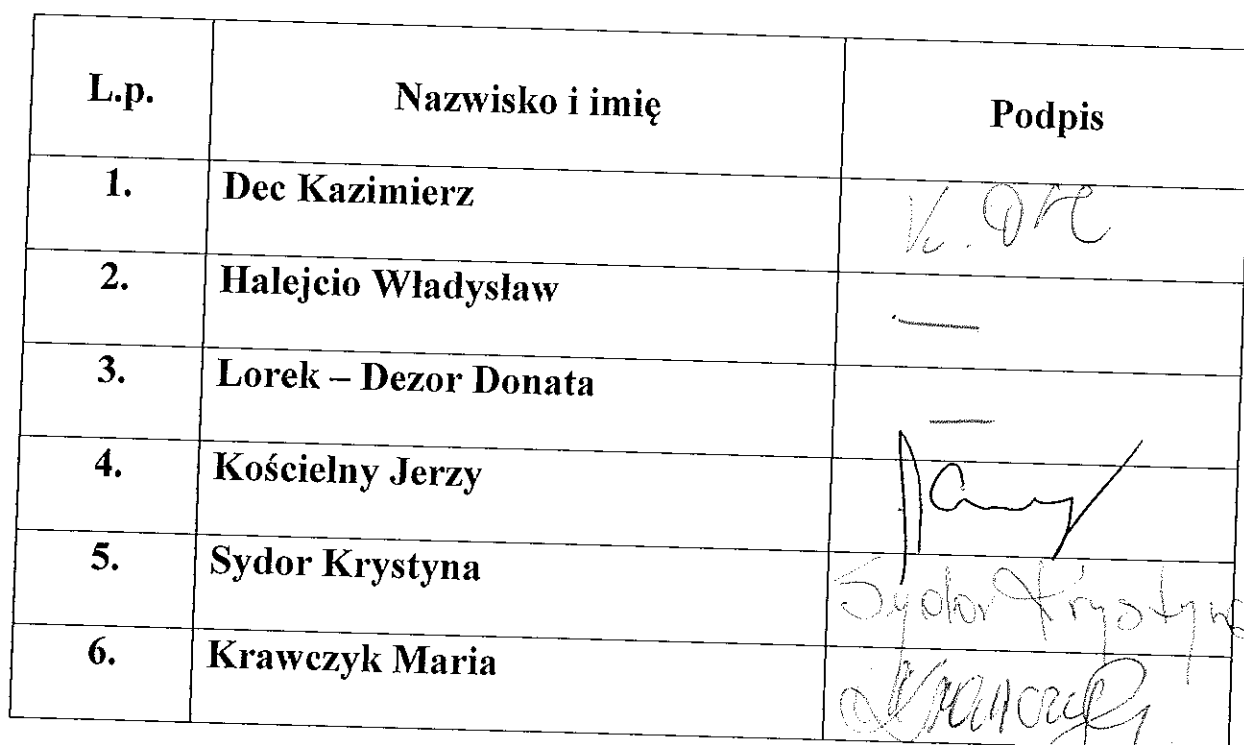 L.p. Nazwisko i imię Podpis
1. Dec Kazimierz K. Dec
2. Halejcio Władysław —
3. Lorek – Dezor Donata —
4. Kościelny Jerzy
5. Sydor Krystyna Sydor Krystyna
6. Krawczyk Maria Krawczyk